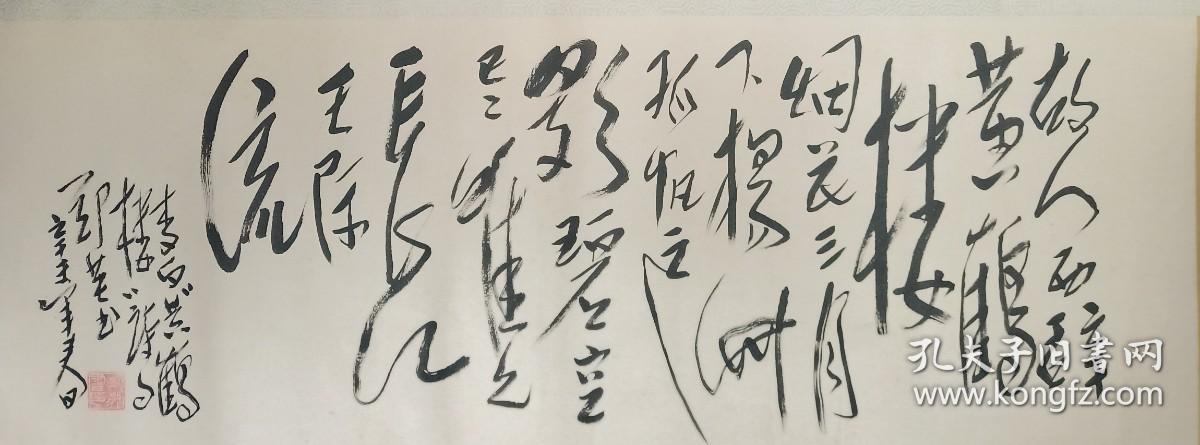 故人西辞
黄鹤
楼
烟花三月
下扬州
孤帆远
影碧空
尽唯见
长江
天际
流
李白黄鹤
楼诗
书
辛未年夏日
孔夫子旧书网
www.kongfz.com